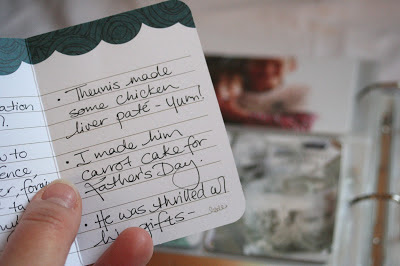 ation
?.
w to
ence,
er, forai
ta
wh
• Theunis made
some chicken
liver paté - Yum!
• I made him
carrot cake for
Father's Day.
• He was thrilled w/
his gifts -